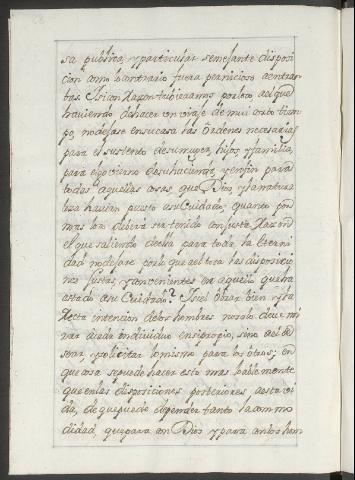 sa publica, y particular semejante disposi
cion como lo contrario fuera pernicioso a entram
bas. Y si con razon tubieramos por loco a el que
haviendo de hacer un viaje de mui corto tiem
po, no dejase en su casa las ordenes necesarias
para el sustento de su muger, hijos, y familia,
para el govierno de su hacienda, y en fin para
todas aquellas cosas que Dios, y la natura
leza havian puesto a su Cuidado; quanto por
mas loco deberá ser tenido con justa razon
el que saliendo de ella para toda la Eterni
dad no dejare por lo que a el toca las disposicio
nes justas, y convenientes en aquello que ha
estado a su Cuidado? Y si el obrar bien y la
recta intencion de los hombres no solo deve mi
rar a cada individuo en si propio, sino a el de
sear, y solicitar lo mismo para los otros; en
que cosa se puede hacer esto mas bablemente
que en las disposiciones posteriores a esta vi
da, de que puede depender tanto la commo
didad, que para con Dios y para con los hom